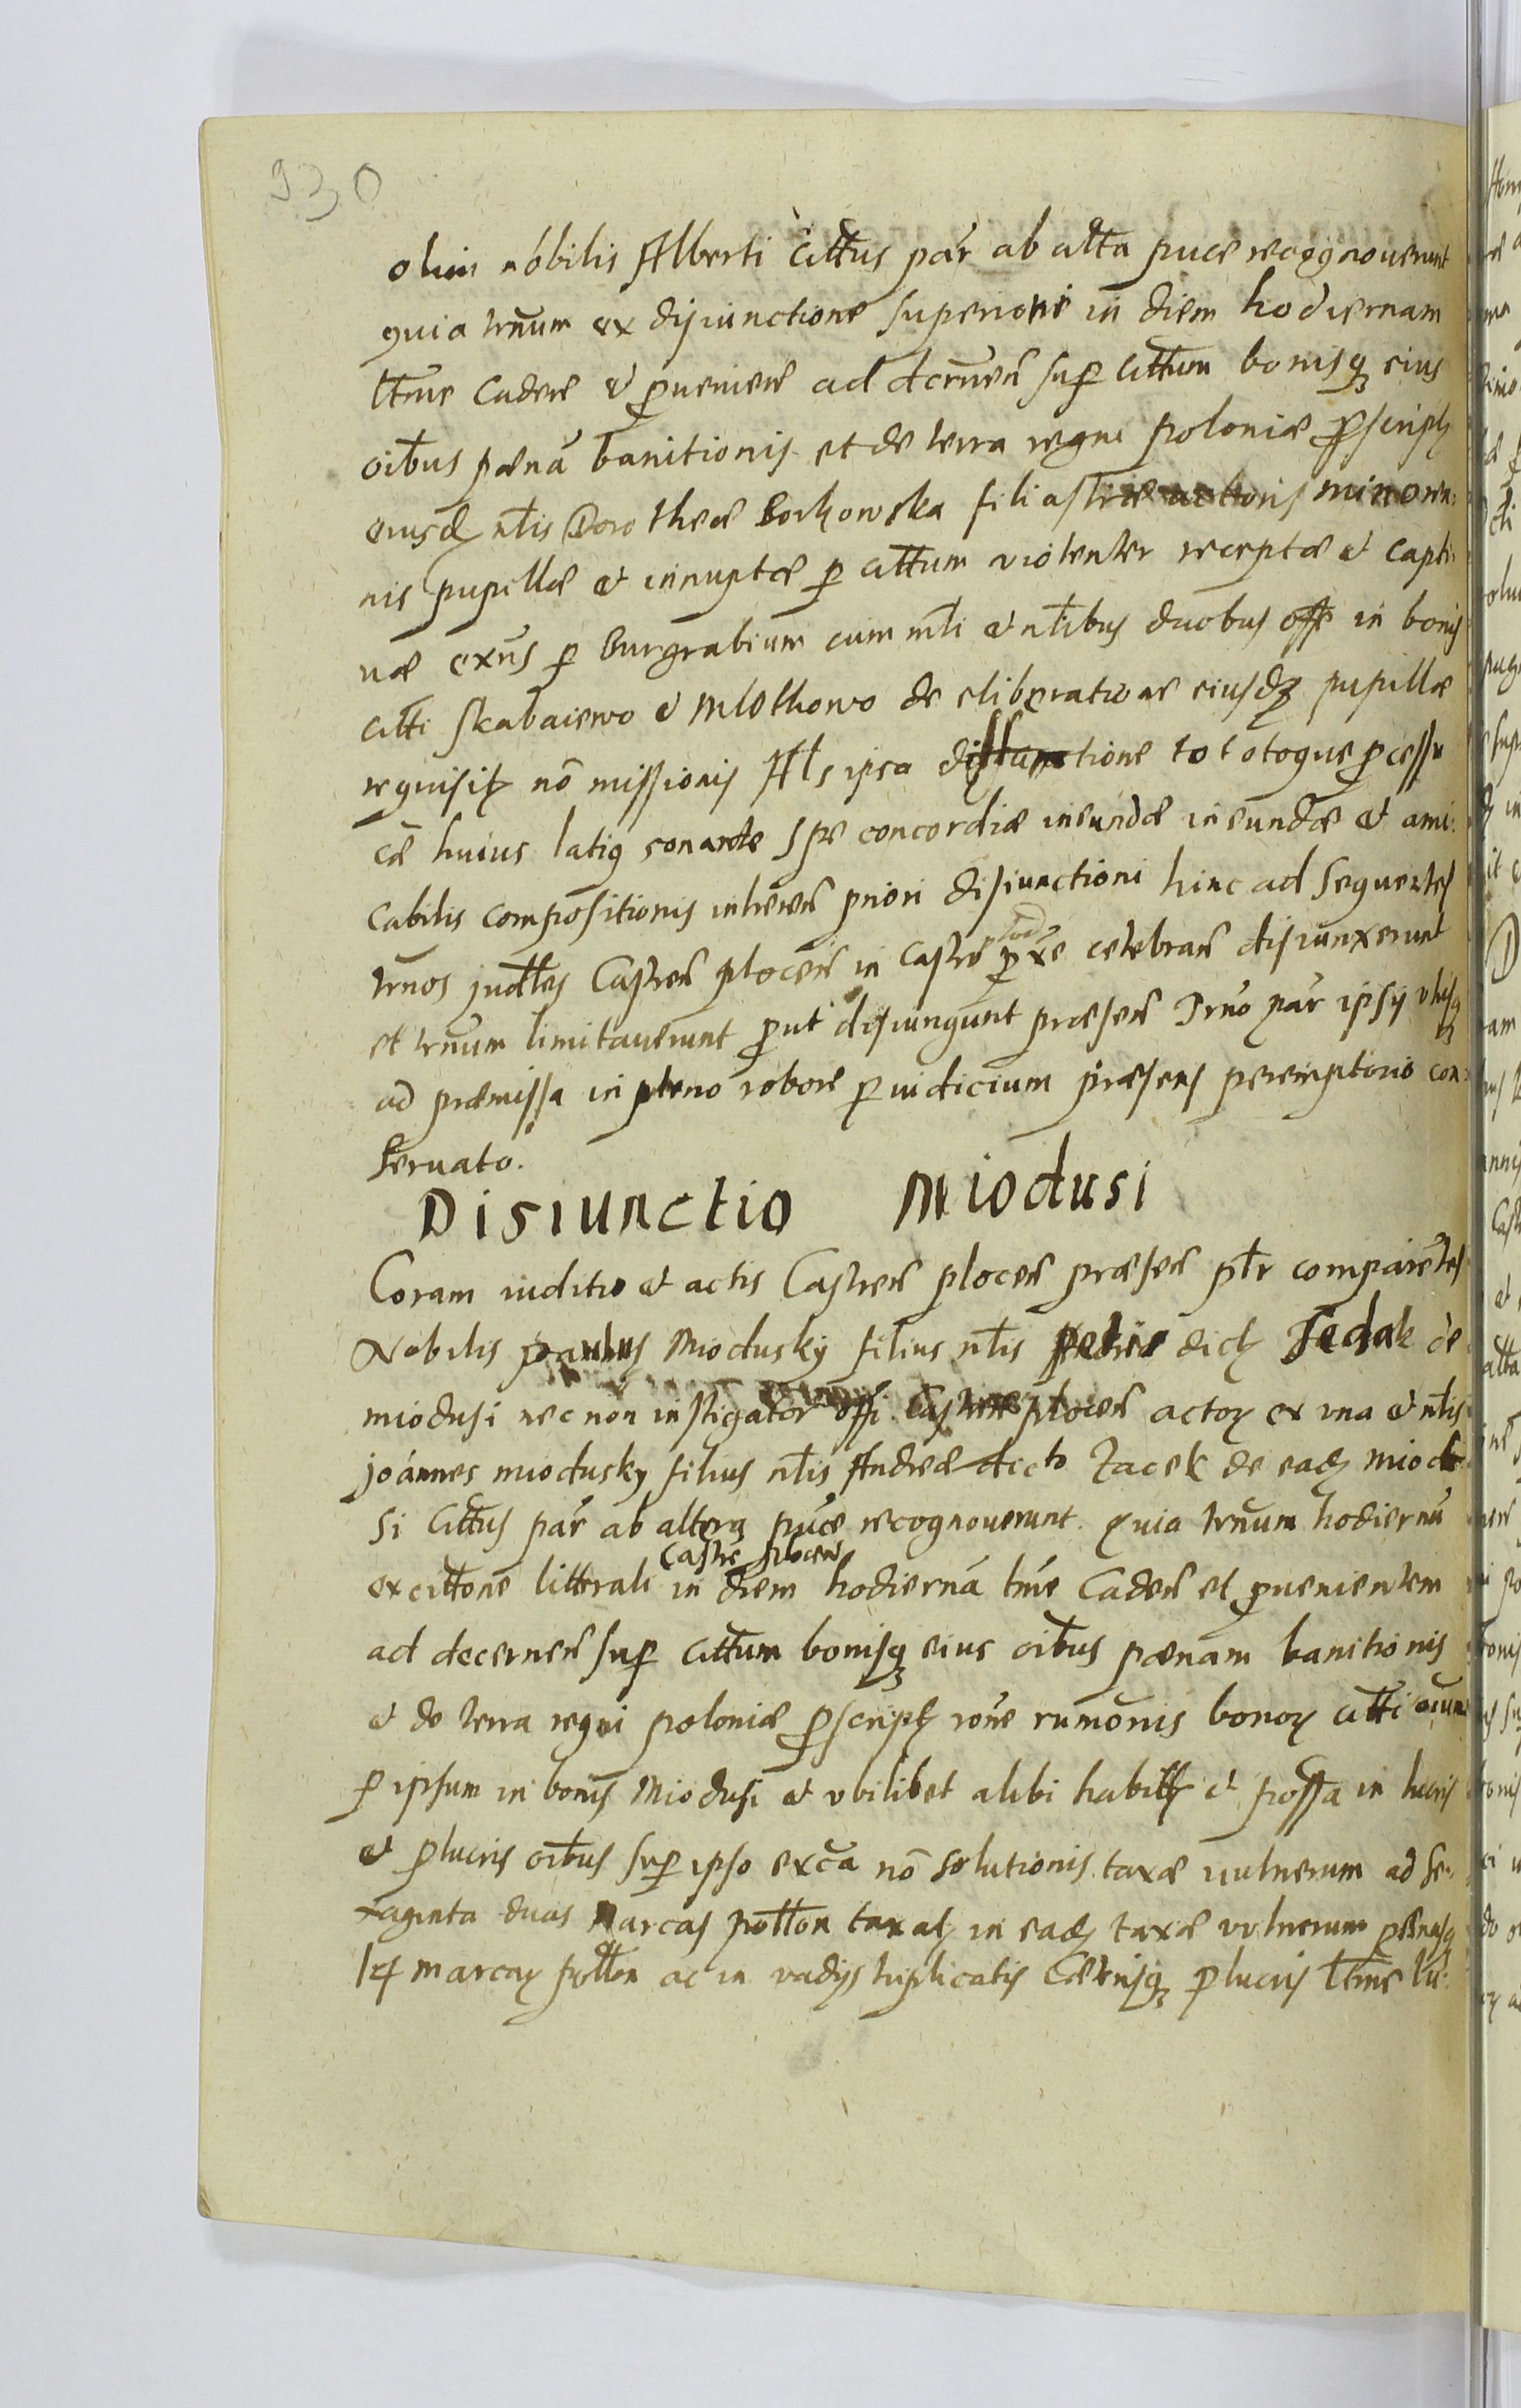 930
olim nobilis Alberti Cittus par ab alta puce recognouerunt
quia trnum ex disiunctione superiori in diem hodiernam
ltme Caden et puenien ad dcrnen sup Cittum bonisq eius
oibus pœna banitionis et de terra regni poloniæ pscript
eiusd ntis Dorotheæ Borkowska filiastræ actoris minoren:
nis pupillæ et innuptæ p cittum violenter receptæ et capti
uæ exns p Burgrabium cum mti et ntibus duobus offe in bonis
citti Skabaiewo et Mlothowo de eliberatione eiusdq pupillæ
requisit nō missionis Als ipsa disiunctione tot otoque pcessu
cæ huius latig sonante spe concordiæ ineundæ ineundæ et ami:
cabilis compositionis inheren priori disiunctioni hinc ad Sequentes
trnos judtles Castren plocen in Castro pxe celebran disiunxerunt
et trnum limitauerunt put disiungunt præsen Trno par ipsis vtrisq
ad præmissa in pleno robore p iudicium præsens peremptorio con:
seruato.
Disiunctio Miodusi
Coram iuditio et actis Castren plocen præsen ptr comparentes
Nobilis paulus Miodusky filius ntis Petri dict Jedak de
miodusi nec non instigator offi Castren plocen actor ex vna et ntis
joannes miodusky filius ntis Andreæ dicto Jacek de ead miodu
si Cittus par ab altera puce recognouerunt. quia trnum hodiernu
Castre plocen
ex cittone litterali in diem hodierna tme Caden et prueniertem
ad decernen sup Cittum bonisq eius oibus pœnam banitionis
et de terra regni poloniæ pscript rone rumonis bonor citti oium
p ipsum in bonis Miodusi et vbilibet alibi habitt et possa in lucris
et plucris oibus sup ipso exca nō solutionis taxæ vulnerum ad se:
xaginta duas Marcas potton taxat in ead taxæ vulnerum pœnasq
14 marcar potton ac in vadijs triplicatis Cæterisq plucris ltme lu: